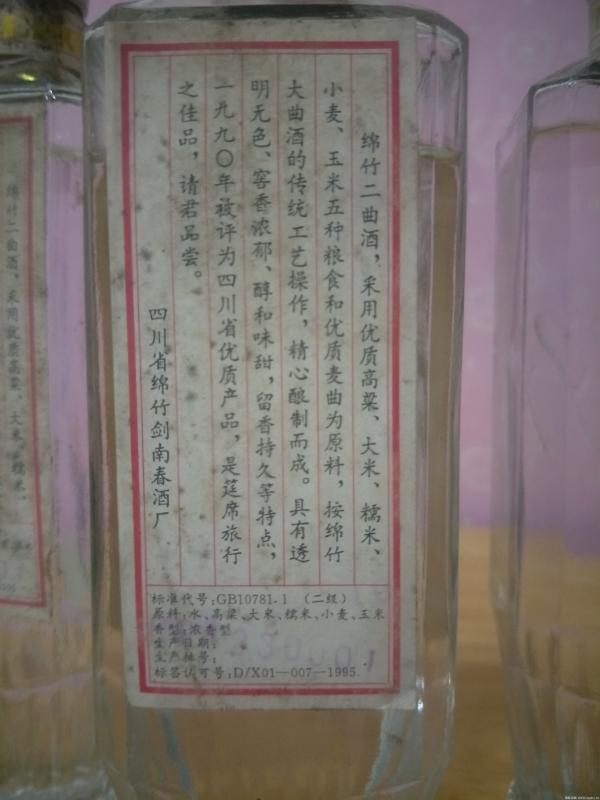 绵竹二曲酒，采用优质高粱、大米、糯米、
小麦、玉米五种粮食和优质麦曲为原料，按绵竹
大曲酒的传统工艺操作，精心酿制而成。具有透
明无色、窖香浓郁、醇和味甜，留香持久等特点，
一九九〇年被评为四川省优质产品，是筵席旅行
之佳品，请君品尝。
四川省绵竹剑南春酒厂
标准代号:GB10781·1 （二级）
原料:水、高粱、大米、糯米、小麦、玉米
香型:浓香型
生产日期:
生产批号:
标签认可号:D/X01—007—1995.
绵竹二曲酒，采用优质高粱、大米、糯米、